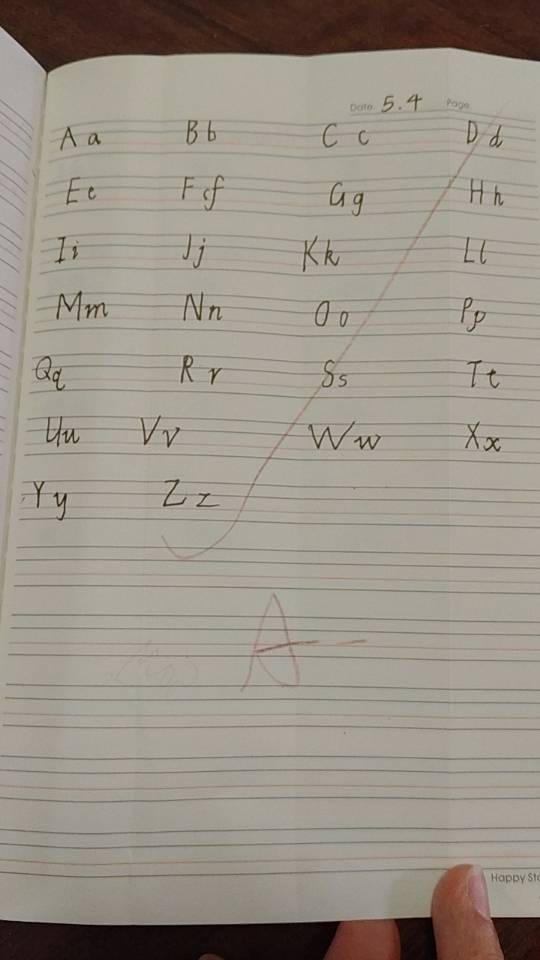 Date 5.4 Page
Aa Bb Cc Dd
Ee Ff Gg Hh
Ii Jj Kk Ll
Mm Nn Oo Pp
Qq Rr Ss Tt
Uu Vv Ww Xx
Yy Zz
A-